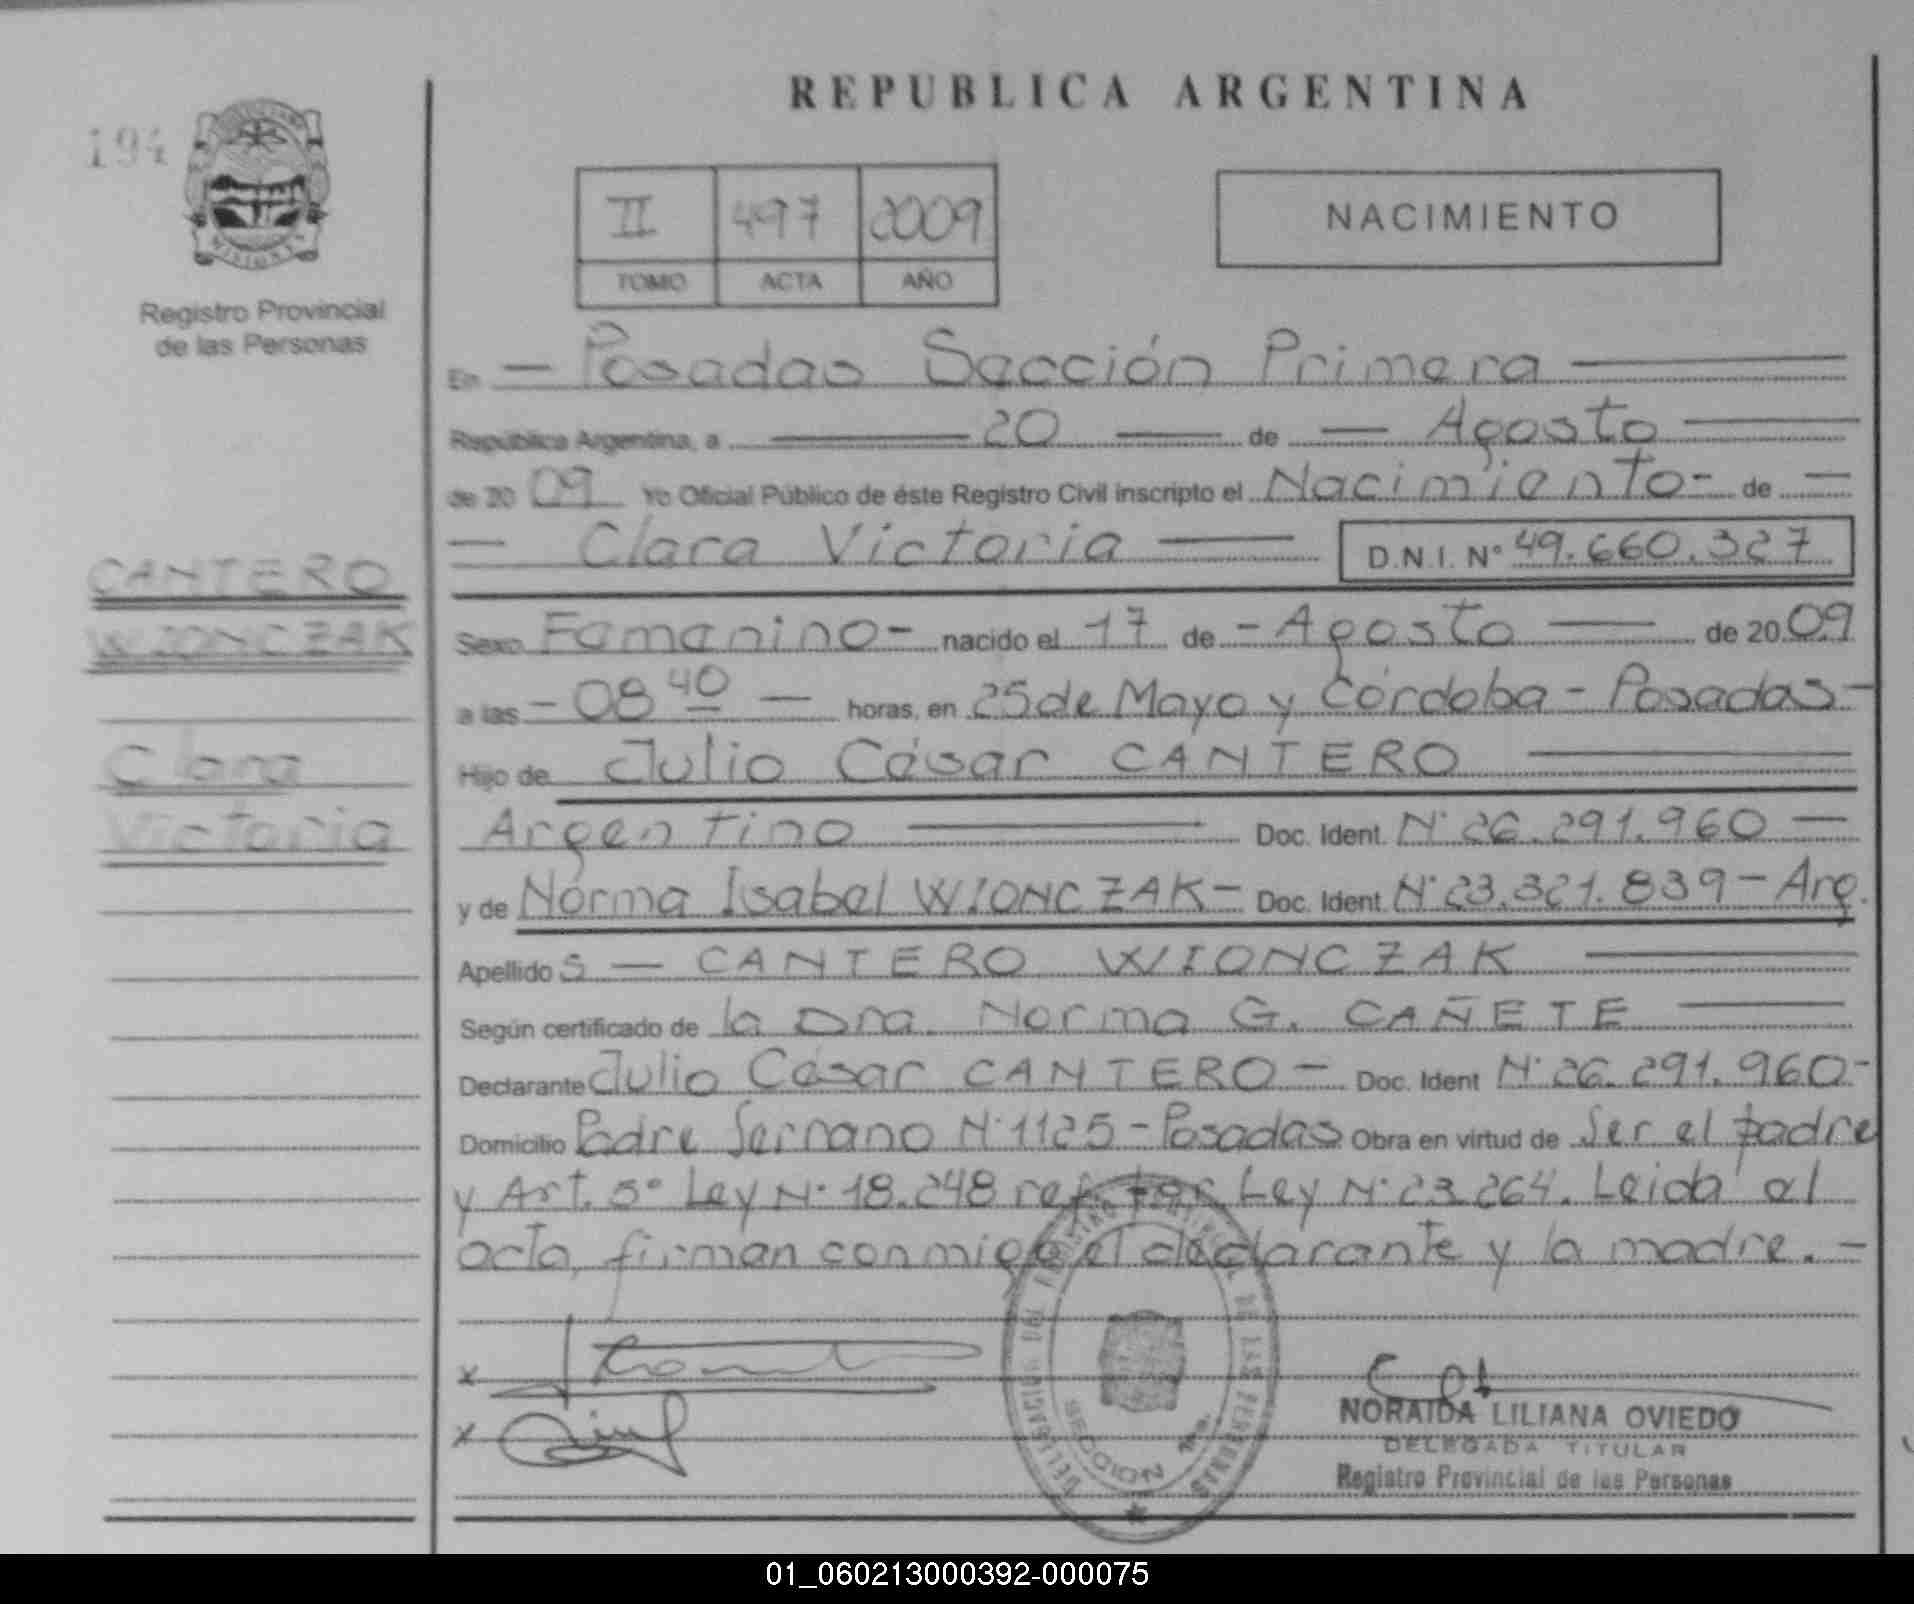 REPUBLICA ARGENTINA
194
II 497 2009
TOMO ACTA AÑO
NACIMIENTO
MISIONES
Registro Provincial
de las Personas
En — Posadas Sección Primera —
República Argentina, a — 20 — de — Agosto —
de 2009 Yo Oficial Público de éste Registro Civil inscripto el Nacimiento- de —
— Clara Victoria — D.N.I. N° 49.660.327
CANTERO
WIONCZAK
Clara
Victoria
Sexo Femenino- nacido el 17 de - Agosto — de 2009
a las - 08 40 — horas, en 25 de Mayo y Córdoba - Posadas -
Hijo de Julio César CANTERO —
Argentino — Doc. Ident. N° 26.291.960 —
y de Norma Isabel WIONCZAK - Doc. Ident. N° 23.321.839 - Arg.
Apellidos — CANTERO WIONCZAK —
Según certificado de la Dra. Norma G. CAÑETE —
Declarante Julio César CANTERO - Doc. Ident N° 26.291.960-
Domicilio Padre Serrano N° 1125 - Posadas Obra en virtud de Ser el padre
y Art. 5° Ley N° 18.248 ref. por Ley N° 23.264. Leida el
acta, firman conmigo el declarante y la madre. -
x
x
DELEGACION DEL REGISTRO PROVINCIAL DE LAS PERSONAS
SECCION 1ra.
NORAIDA LILIANA OVIEDO
DELEGADA TITULAR
Registro Provincial de las Personas
01_060213000392-000075